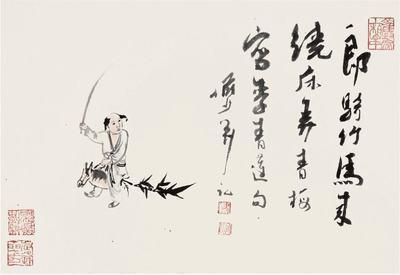 郎騎竹馬来
繞床弄青梅
寫李青蓮句